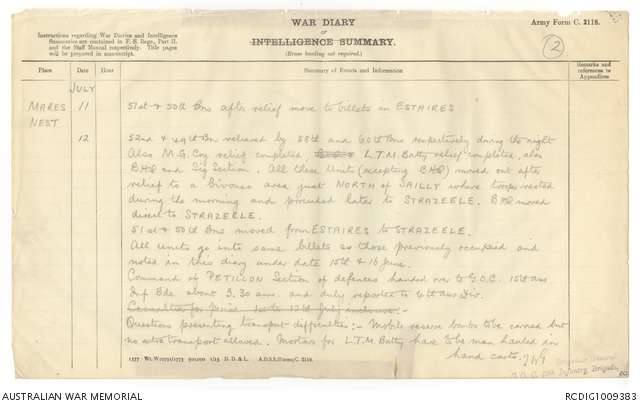 WAR DIARY
or
INTELLIGENCE SUMMARY.
(Erase heading not required.)
Army Form C. 2118.
2
Instructions regarding War Diaries and Intelligence
Summaries are contained in F. S. Regs., Part II.
and the Staff Manual respectively. Title pages
will be prepared in manuscript.
Place
Date
Hour
Summary of Events and Information
Remarks and
references to
Appendices
JULY
MARES NEST 11 51st & 50th Bns after relief move to billets in ESTAIRES
12 52nd & 49th Bn relieved by 58th and 60th Bns respectively during the night
Also M.G. Coy relief completed, L.T.M. Batty relief completed, also
BHQ and Sig Section. All these Units (excepting BHQ) moved out after
relief to a Bivouac area just NORTH of SAILLY where troops rested
during the morning and proceeded later to STRAZEELE. BHQ moved
direct to STRAZEELE.
51st & 50th Bns moved from ESTAIRES to STRAZEELE.
All Units go into same billets as those previously occupied and
noted in this diary under date 15th & 16 June.
Command of PETILLON Section of defences handed over to G.O.C. 15th Aus
Inf Bde about 9.30 am. and duly reported to 4th Aus Div.
Casualties for Period 1st to 12th July inclusive:-
Questions presenting transport difficulties:- Mobile reserve bombs to be carried but
no extra transport allowed. Mortars for L.T.M. Batty have to be man hauled in
hand carts.
1577 Wt. W10791/1773 500,000 1/15 D. D. & L. A.D.S.S./Forms/C. 2118.
Infantry Brigade
AUSTRALIAN WAR MEMORIAL
RCDIG1009383